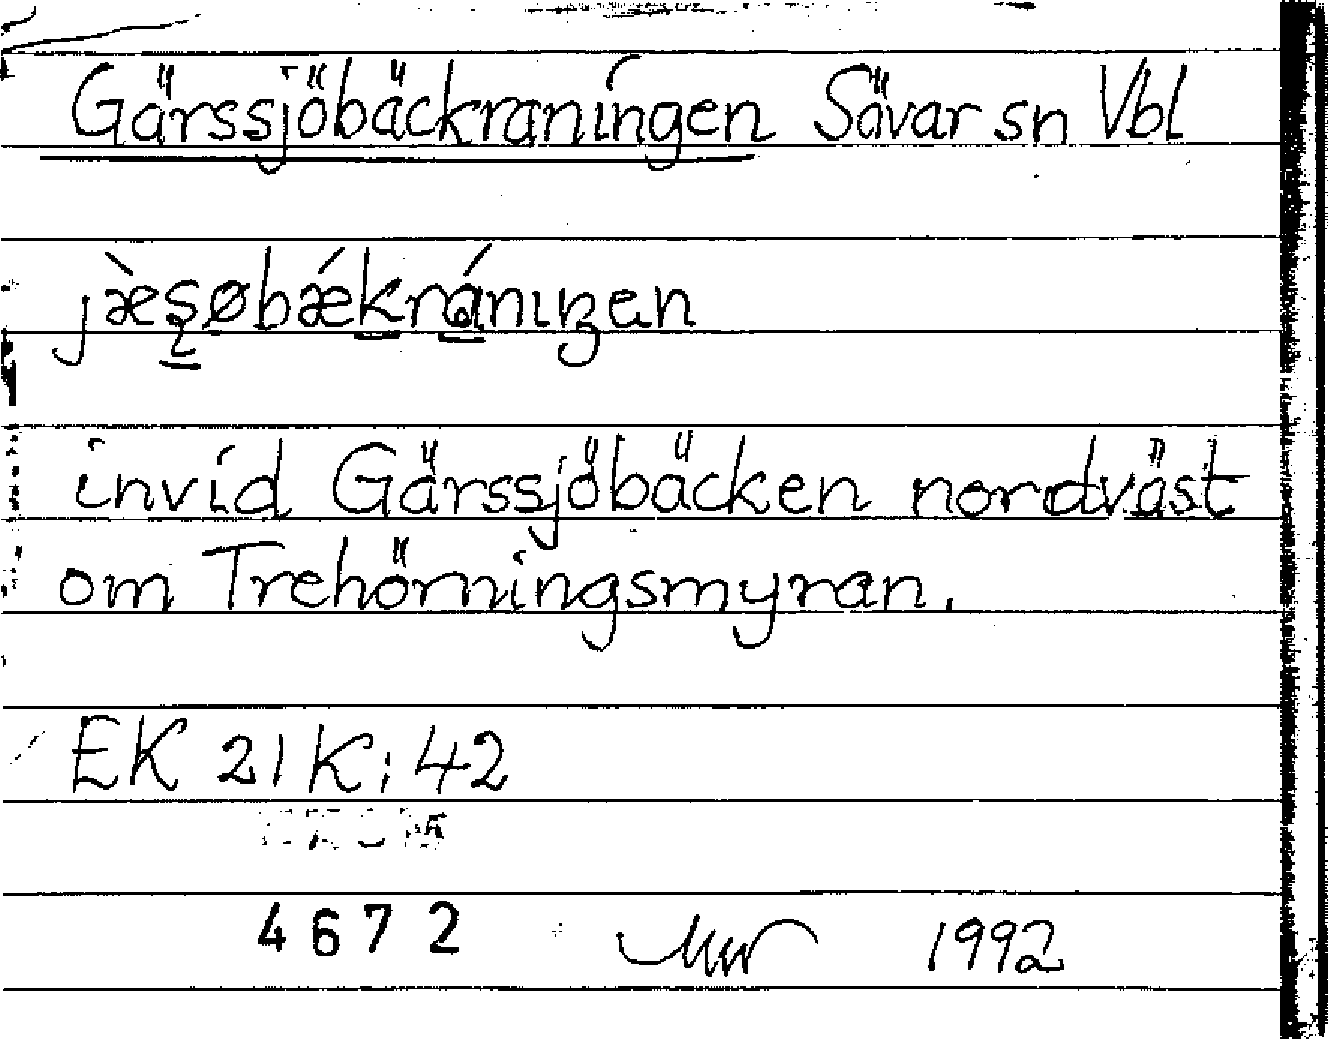 Gärssjöbäckraningen Sävar sn Vbl
jæ̀ʂøbǽkránıŋen
invid Gärssjöbäcken nordväst
om Trehörningsmyran.
EK 21 K: 42
4672 1992